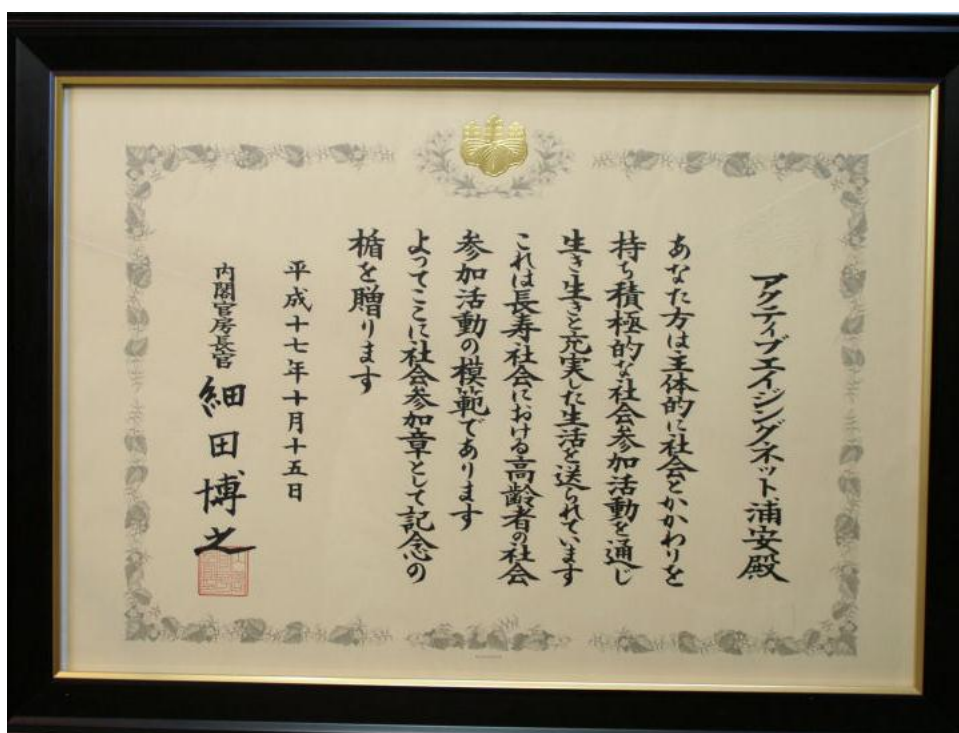 アクティブエイジングネット浦安殿
あなた方は主体的に社会とかかわりを
持ち積極的な社会参加活動を通じ
生き生きと充実した生活を送られています
これは長寿社会における高齢者の社会
参加活動の模範であります
よってここに社会参加章として記念の
楯を贈ります
平成十七年十月十五日
内閣官房長官 細田博之